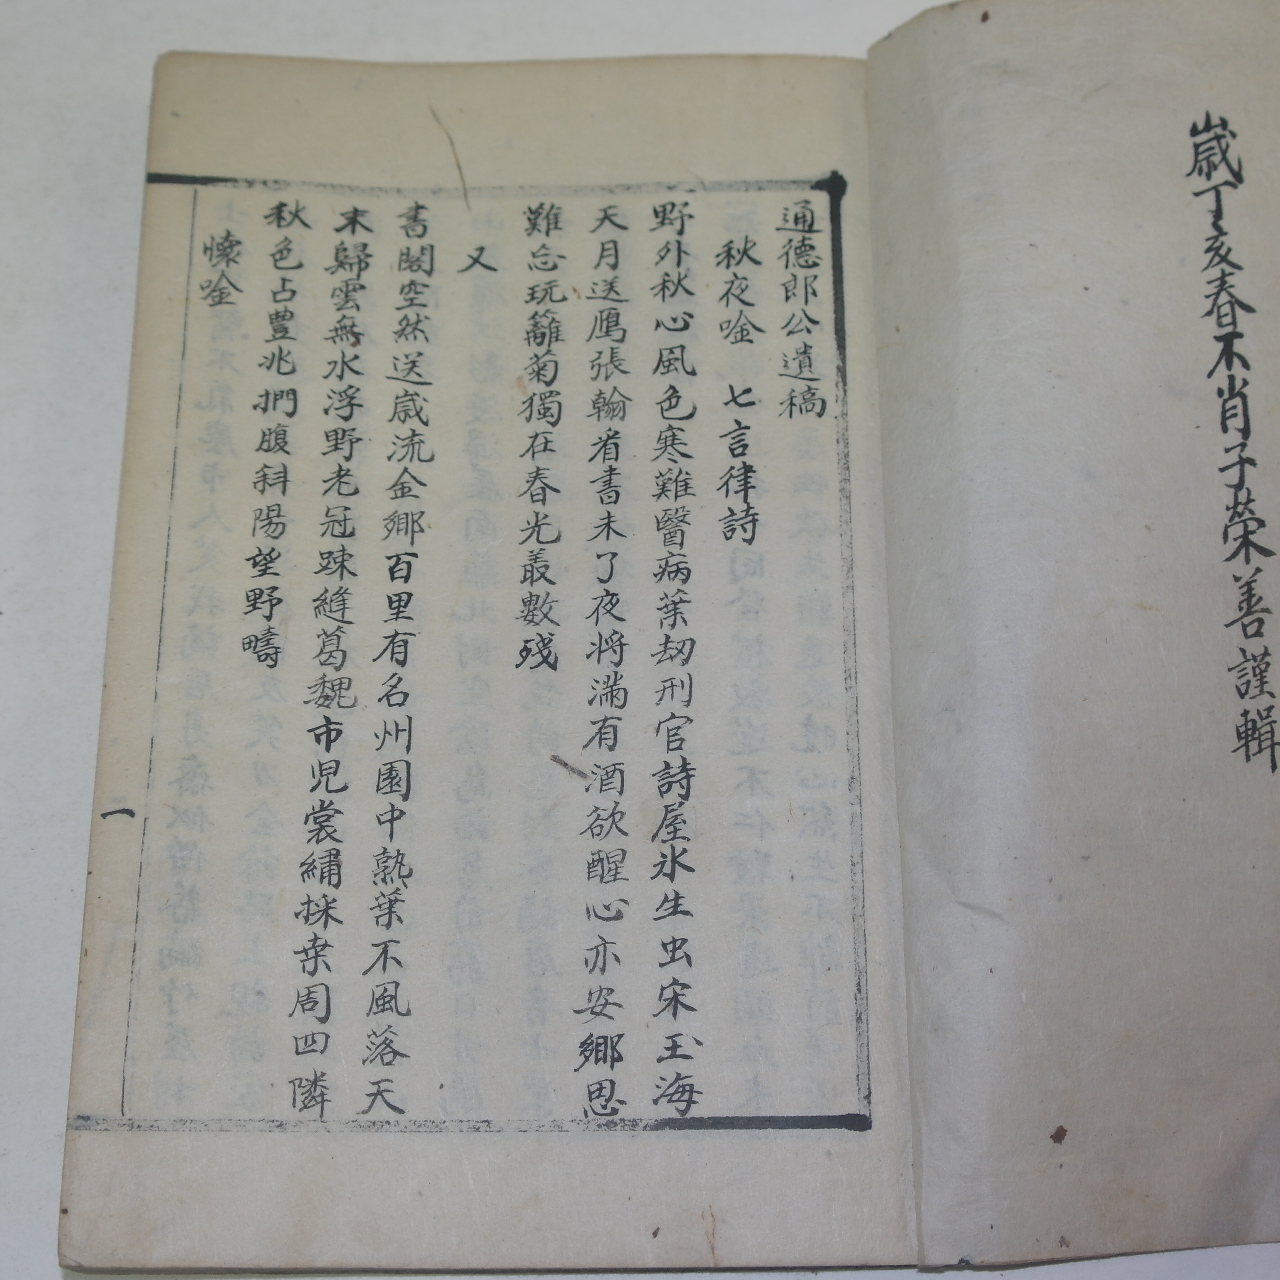 歲丁亥春不肖子榮善謹輯
通德郎公遺稿
秋夜唫 七言律詩
野外秋心風色寒難醫病葉刼刑官詩屋氷生虫宋玉海
天月送鴈張翰看書未了夜將滿有酒欲醒心亦安鄉思
難忘玩籬菊獨在春光叢數殘
又
書閣空然送歲流金鄉百里有名州園中熟葉不風落天
末歸雲無水浮野老冠踈縫葛魏市児裳繡採桒周四隣
秋色占豊兆捫腹斜陽望野疇
懷唫
一